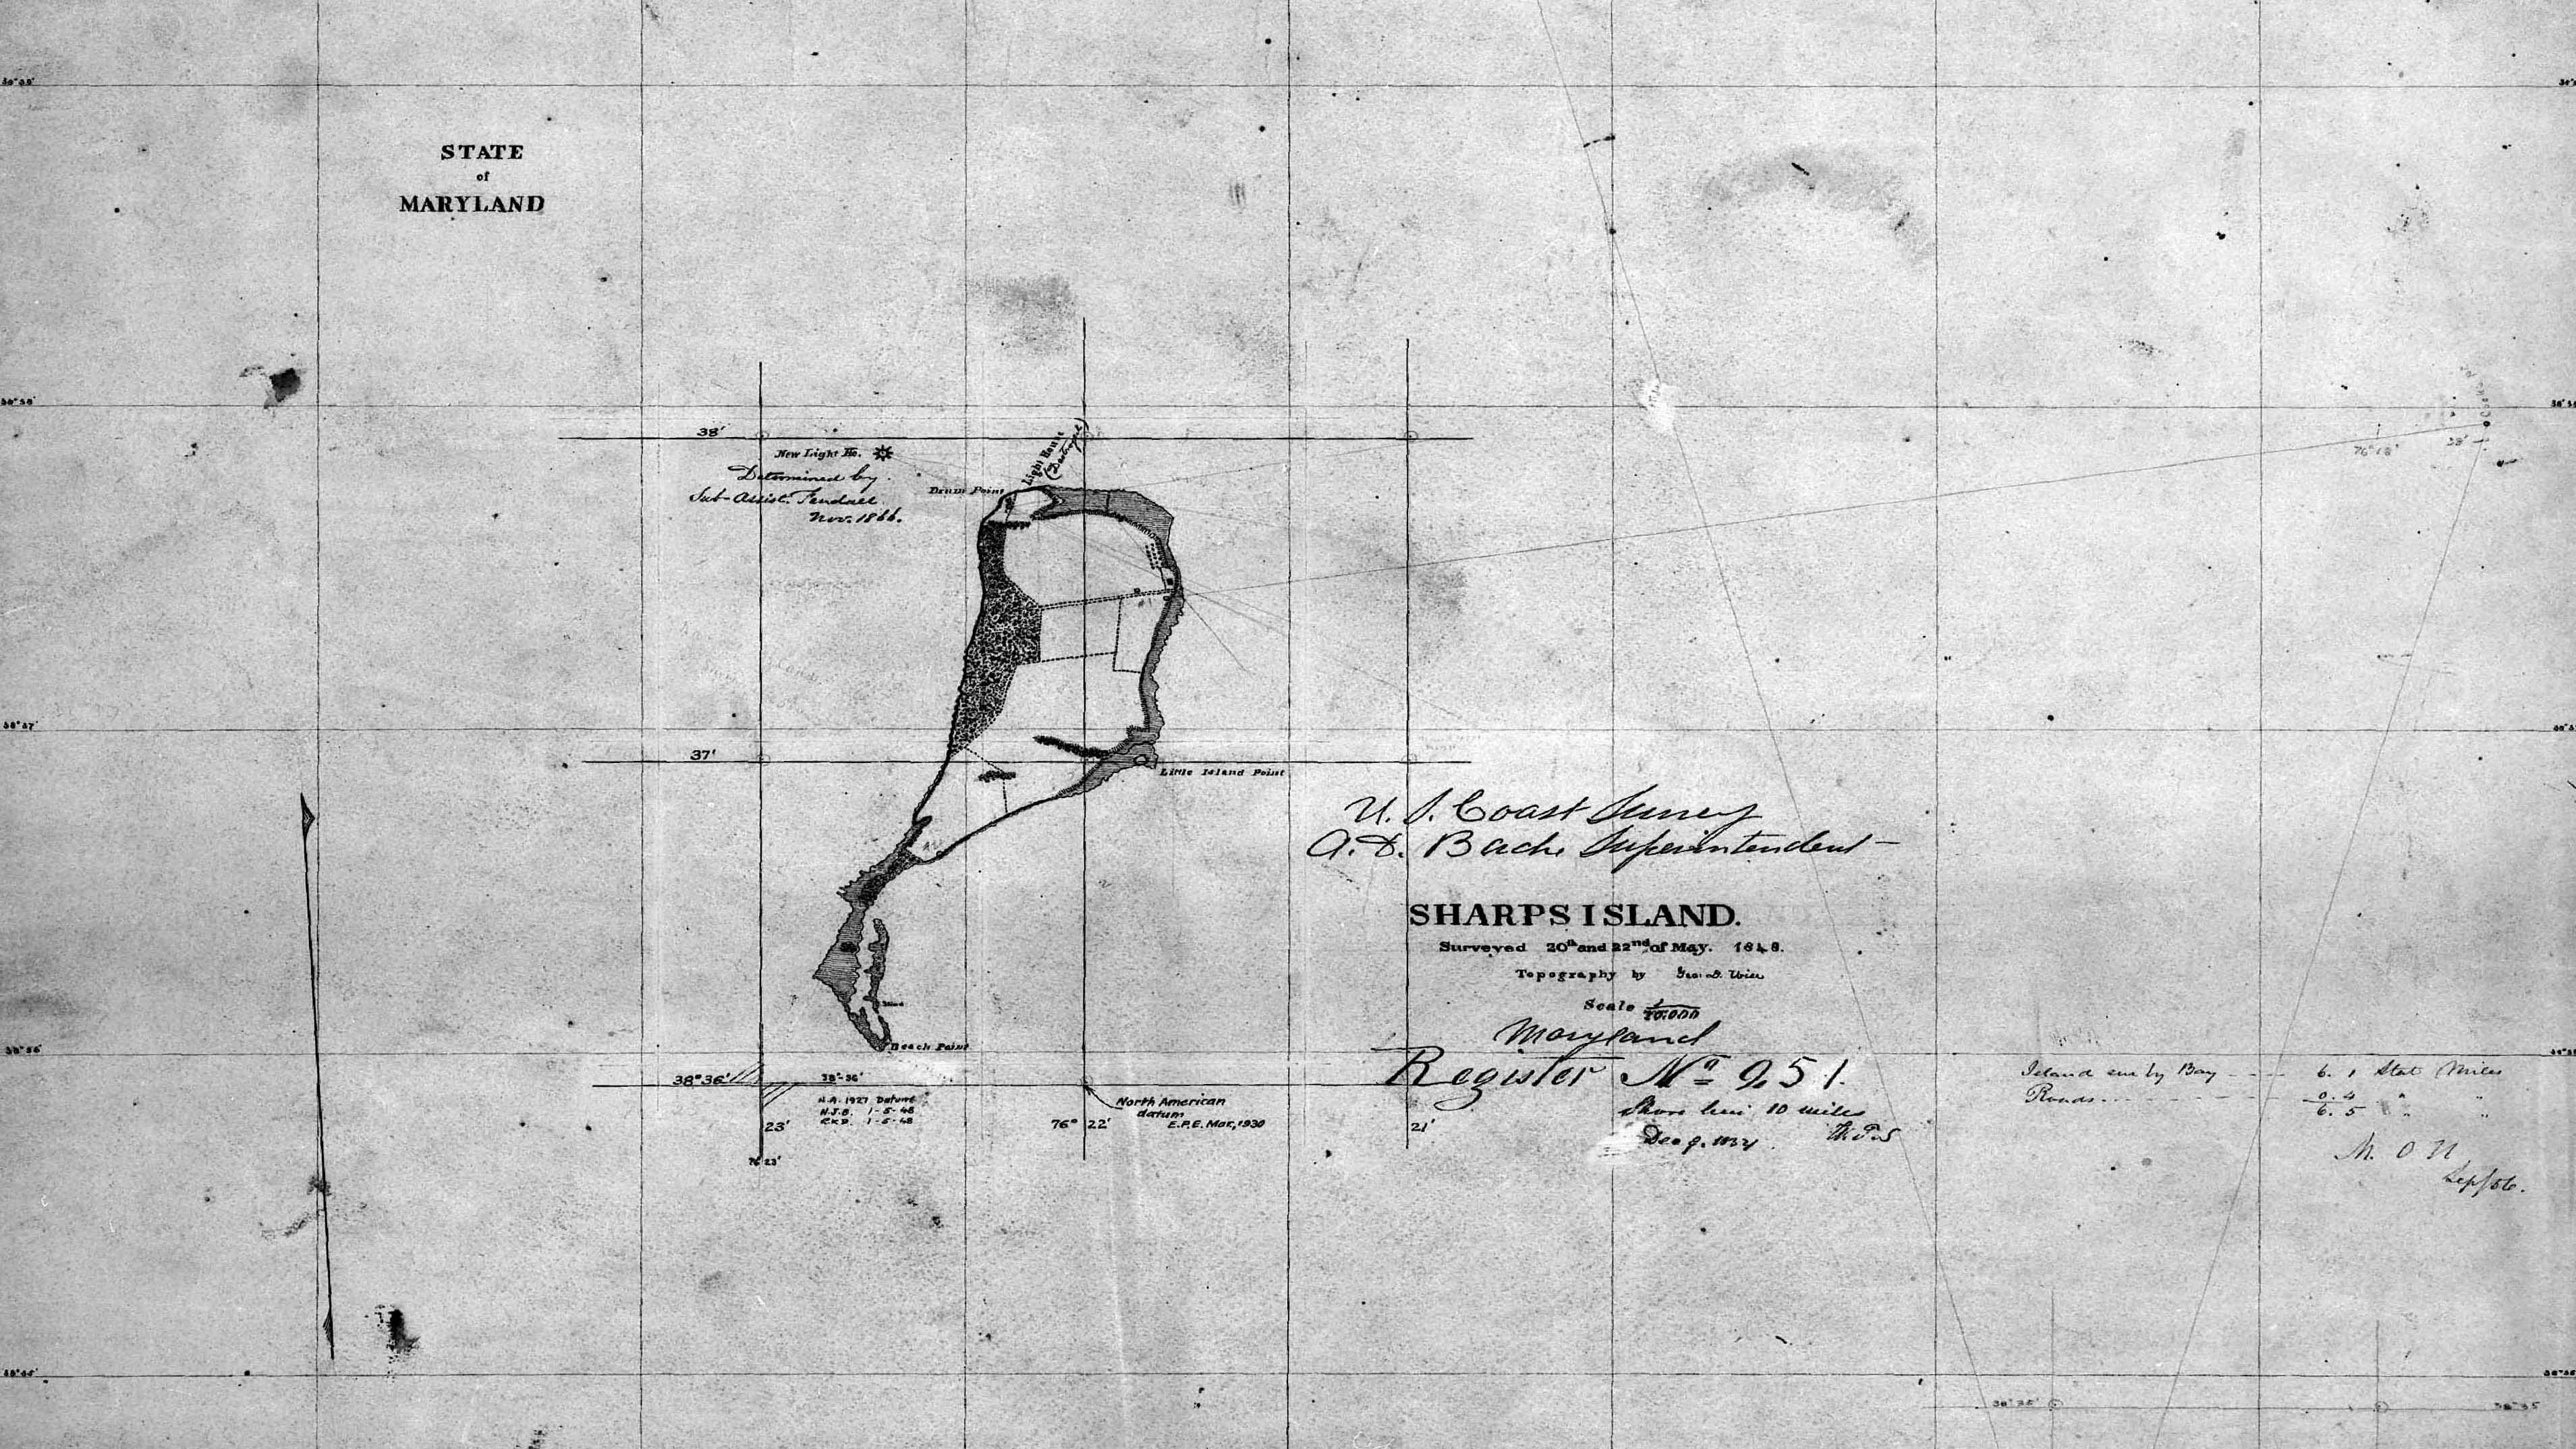 STATE
of
MARYLAND
38'
New Light Ho.
Determined by
Sub-Assist. Fendall
Nov. 1866.
Light House
(Destroyed)
Drum Point
37'
Little Island Point
Beach Point
38°36'
38°-36'
N.A. 1927 Datum
N.J.B. 1-5-48
C.K.D. 1-5-48
23'
76° 23'
76° 22'
North American
datum
E.P.E. Mar., 1930
21'
U. S. Coast Survey
A. D. Bache Superintendent
SHARPS ISLAND.
Surveyed 20th and 22nd of May. 1848.
Topography by Geo. D. Wise
Scale 1/10.000
Maryland
Register No 251.
Shore line 10 miles
Island sur by Bay 6. 1 Stat Miles
Roads 0. 4 " "
6. 5 " "
38°59'
38°58'
38°57'
38°56'
76°18'
38'
38°35'
38°35